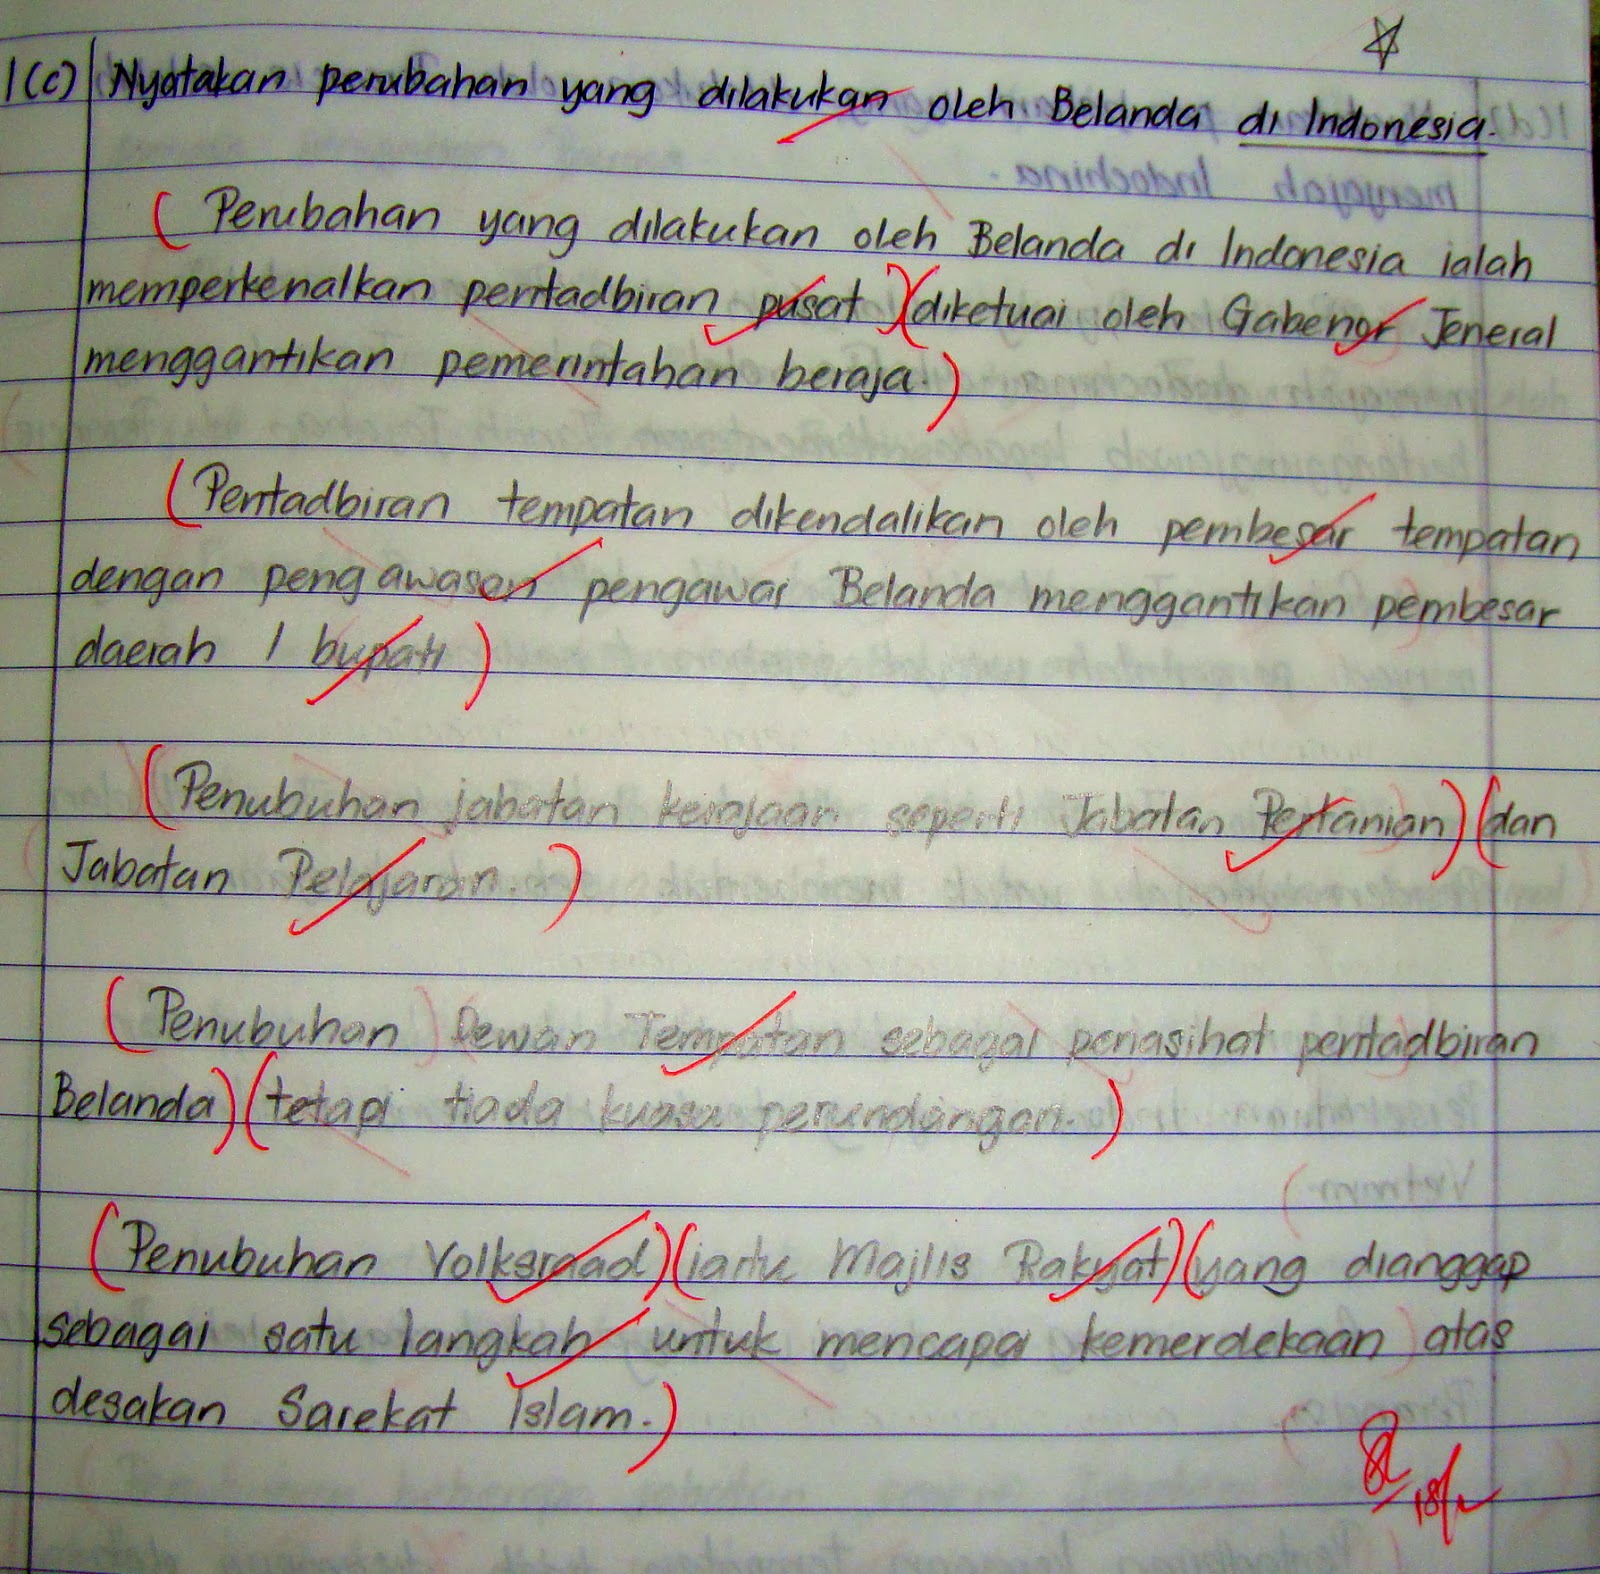 1(c) Nyatakan perubahan yang dilakukan oleh Belanda di Indonesia.
(Perubahan yang dilakukan oleh Belanda di Indonesia ialah
memperkenalkan pentadbiran pusat)(diketuai oleh Gabenor Jeneral
menggantikan pemerintahan beraja.)
(Pentadbiran tempatan dikendalikan oleh pembesar tempatan
dengan pengawasan pengawai Belanda menggantikan pembesar
daerah / bupati)
(Penubuhan jabatan kerajaan seperti Jabatan Pertanian)(dan
Jabatan Pelajaran.)
(Penubuhan Dewan Tempatan sebagai penasihat pentadbiran
Belanda)(tetapi tiada kuasa perundangan.)
(Penubuhan Volksraad)(iaitu Majlis Rakyat)(yang dianggap
sebagai satu langkah untuk mencapai kemerdekaan atas
desakan Sarekat Islam.)